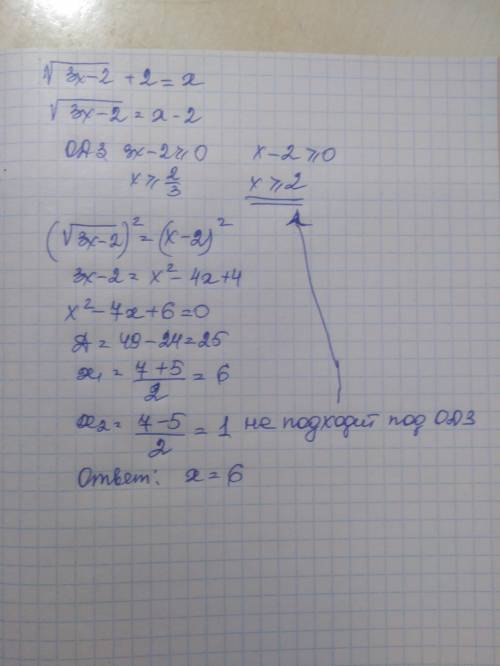 √(3x-2) + 2 = x
√(3x-2) = x - 2
ОДЗ 3x-2 ≥ 0 x-2 ≥ 0
x ≥ 2/3 x ≥ 2
(√(3x-2))² = (x-2)²
3x-2 = x² - 4x + 4
x² - 7x + 6 = 0
Д = 49 - 24 = 25
x₁ = (7+5)/2 = 6
x₂ = (7-5)/2 = 1 не подходит под ОДЗ
Ответ: x = 6